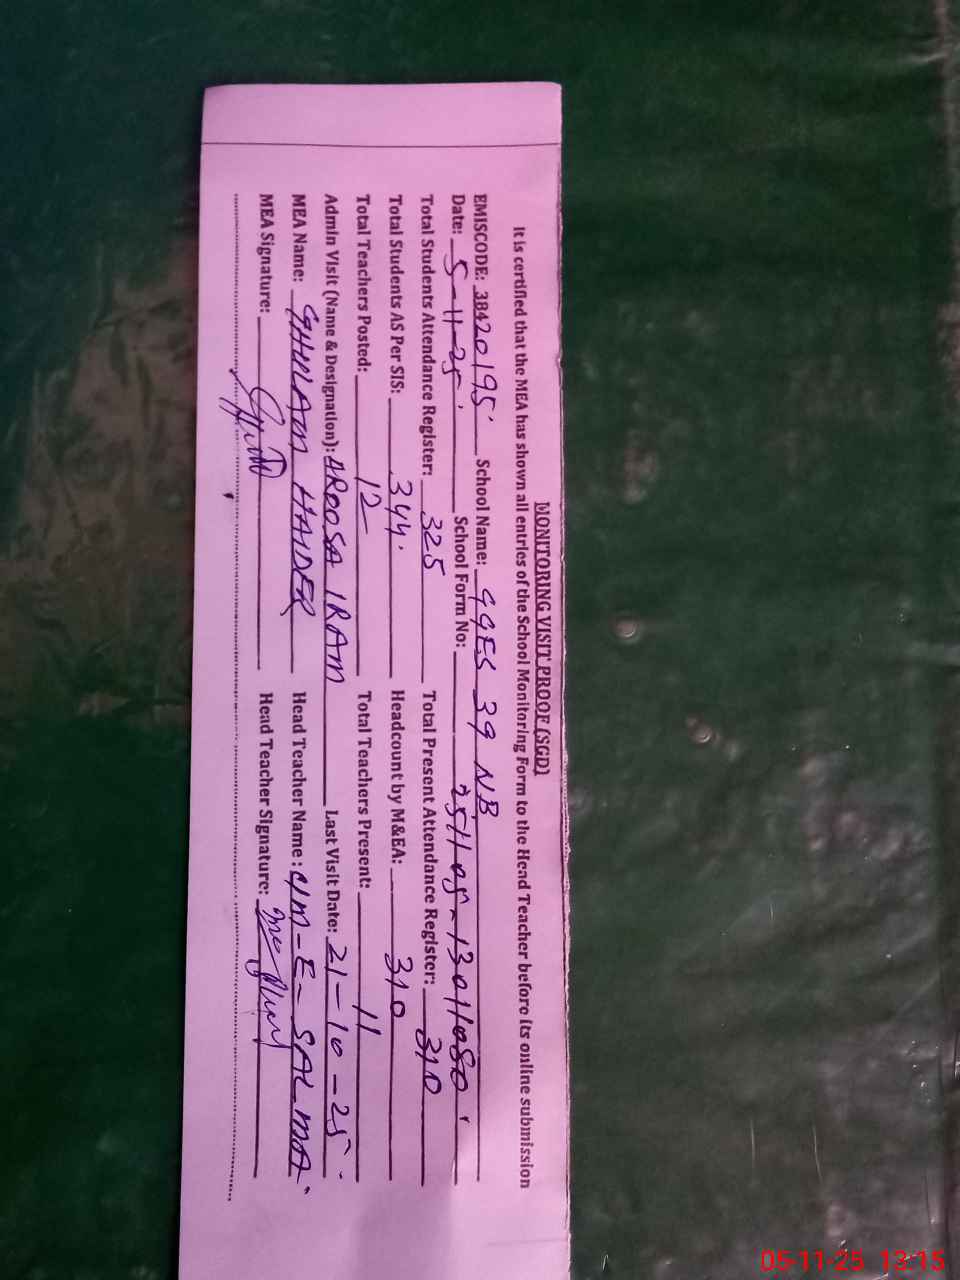 MONITORING VISIT PROOF (SGD)
It is certified that the MEA has shown all entries of the School Monitoring Form to the Head Teacher before its online submission
EMISCODE: 38420195 School Name: GGES 39 NB
Date: 5-11-25 School Form No: 251105-13011080
Total Students Attendance Register: 325 Total Present Attendance Register: 310
Total Students AS Per SIS: 344 Headcount by M&EA: 310
Total Teachers Posted: 12 Total Teachers Present: 11
Admin Visit (Name & Designation): AROOSA IRAM Last Visit Date: 21-10-25
MEA Name: GHULAM HAIDER Head Teacher Name: UM-E-SALMA
MEA Signature: Head Teacher Signature:
05-11-25 13:15